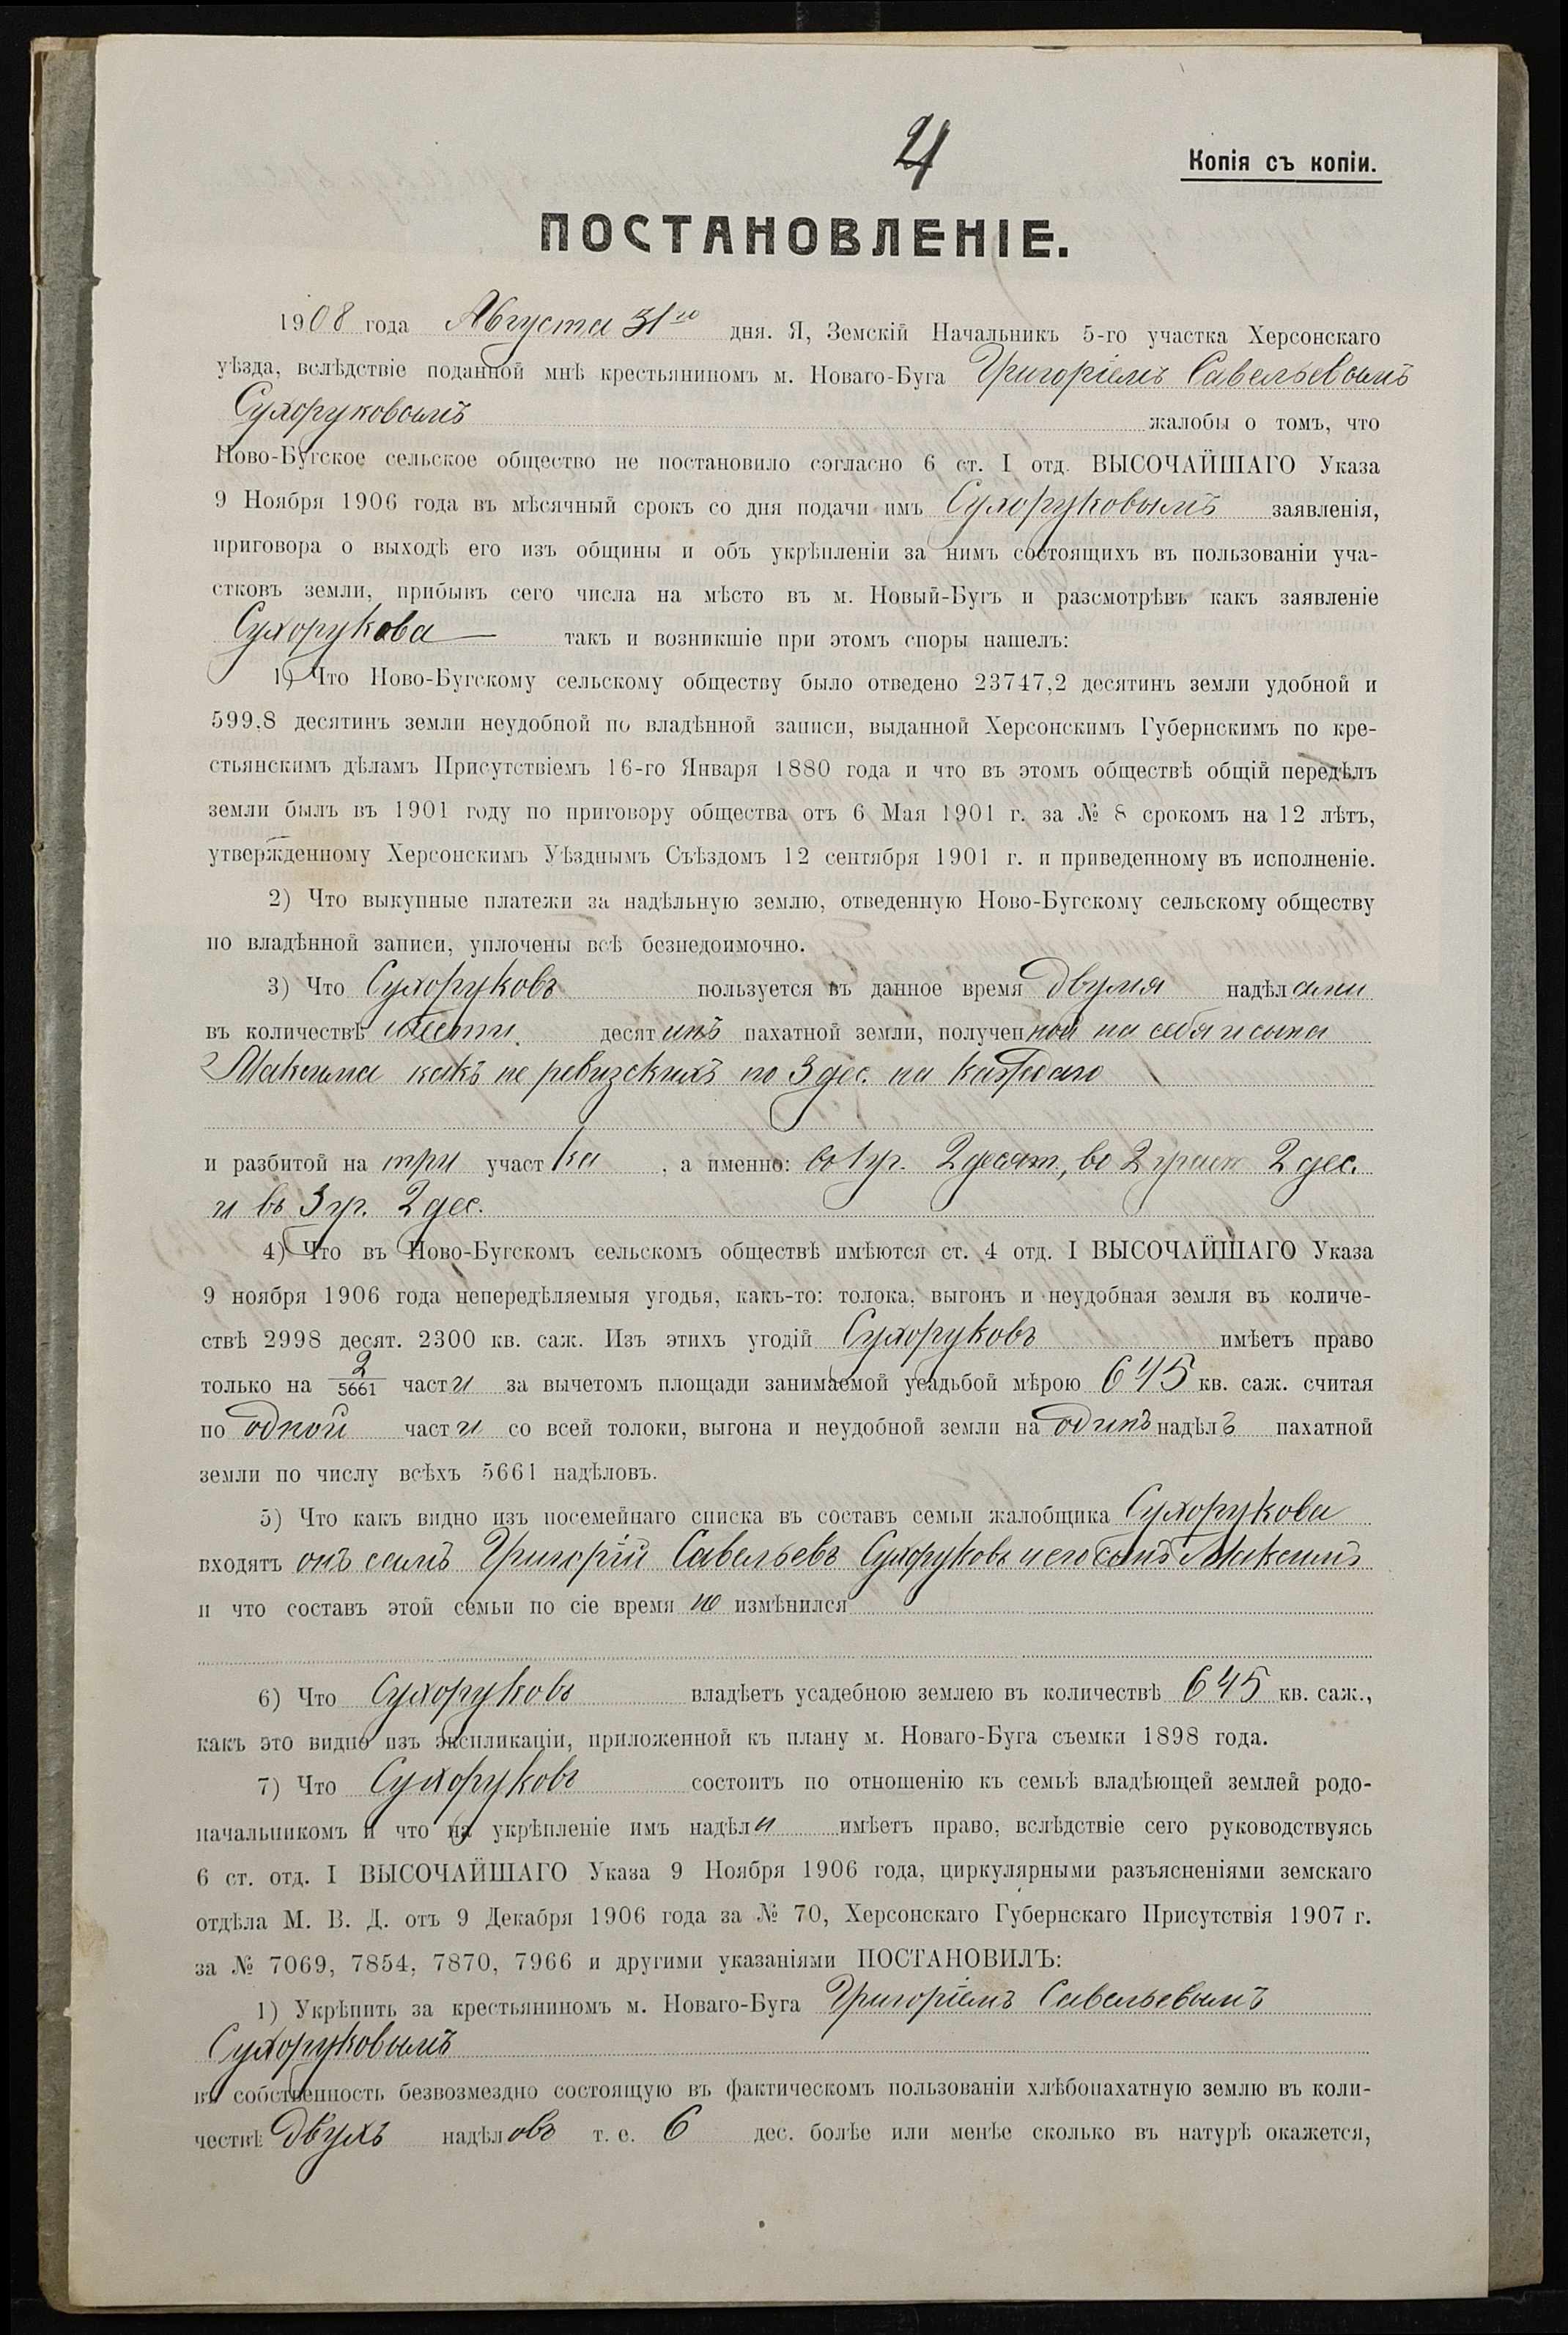 4
Копія съ копіи.
ПОСТАНОВЛЕНІЕ.
1908 года Августа 31го дня. Я, Земскій Начальникъ 5-го участка Херсонскаго
уѣзда, вслѣдствіе поданной мнѣ крестьяниномъ м. Новаго-Буга Григоріемъ Савельевымъ
Сухоруковымъ жалобы о томъ, что
Ново-Бугское сельское общество не постановило согласно 6 ст. I отд. ВЫСОЧАЙШАГО Указа
9 Ноября 1906 года въ мѣсячный срокъ со дня подачи имъ Сухоруковымъ заявленія,
приговора о выходѣ его изъ общины и объ укрѣпленіи за нимъ состоящихъ въ пользованіи уча-
стковъ земли, прибывъ сего числа на мѣсто въ м. Новый-Бугъ и разсмотрѣвъ какъ заявленіе
Сухорукова такъ и возникшіе при этомъ споры нашелъ:
1) Что Ново-Бугскому сельскому обществу было отведено 23747,2 десятинъ земли удобной и
599,8 десятинъ земли неудобной по владѣнной записи, выданной Херсонскимъ Губернскимъ по кре-
стьянскимъ дѣламъ Присутствіемъ 16-го Января 1880 года и что въ этомъ обществѣ общій передѣлъ
земли былъ въ 1901 году по приговору общества отъ 6 Мая 1901 г. за № 8 срокомъ на 12 лѣтъ,
утвержденному Херсонскимъ Уѣзднымъ Съѣздомъ 12 сентября 1901 г. и приведенному въ исполненіе.
2) Что выкупные платежи за надѣльную землю, отведенную Ново-Бугскому сельскому обществу
по владѣнной записи, уплочены всѣ безнедоимочно.
3) Что Сухоруковъ пользуется въ данное время двумя надѣлами
въ количествѣ шести десятинъ пахатной земли, полученной на себя и сына
Максима какъ не ревизскихъ по 3 дес. на каждаго
и разбитой на три участка, а именно: во 1 уч. 2 десят., во 2 участ 2 дес.
и въ 3 уч. 2 дес.
4) Что въ Ново-Бугскомъ сельскомъ обществѣ имѣются ст. 4 отд. I ВЫСОЧАЙШАГО Указа
9 ноября 1906 года непередѣляемыя угодья, какъ-то: толока, выгонъ и неудобная земля въ количе-
ствѣ 2998 десят. 2300 кв. саж. Изъ этихъ угодій Сухоруковъ имѣетъ право
только на 2/5661 части за вычетомъ площади занимаемой усадьбой мѣрою 645 кв. саж. считая
по одной части со всей толоки, выгона и неудобной земли на одинъ надѣлъ пахатной
земли по числу всѣхъ 5661 надѣловъ.
5) Что какъ видно изъ посемейнаго списка въ составъ семьи жалобщика Сухорукова
входятъ онъ самъ Григорій Савельевъ Сухоруковъ и его сынъ Максимъ
и что составъ этой семьи по сіе время не измѣнился
6) Что Сухоруковъ владѣетъ усадебною землею въ количествѣ 645 кв. саж.,
какъ это видно изъ экспликаціи, приложенной къ плану м. Новаго-Буга съемки 1898 года.
7) Что Сухоруковъ состоитъ по отношенію къ семьѣ владѣющей землей родо-
начальникомъ и что на укрѣпленіе имъ надѣла имѣетъ право, вслѣдствіе сего руководствуясь
6 ст. отд. I ВЫСОЧАЙШАГО Указа 9 Ноября 1906 года, циркулярными разъясненіями земскаго
отдѣла М. В. Д. отъ 9 Декабря 1906 года за № 70, Херсонскаго Губернскаго Присутствія 1907 г.
за № 7069, 7854, 7870, 7966 и другими указаніями ПОСТАНОВИЛЪ:
1) Укрѣпить за крестьяниномъ м. Новаго-Буга Григоріемъ Савельевымъ
Сухоруковымъ
въ собственность безвозмездно состоящую въ фактическомъ пользованіи хлѣбопахатную землю въ коли-
чествѣ двухъ надѣловъ т. е. 6 дес. болѣе или менѣе сколько въ натурѣ окажется,